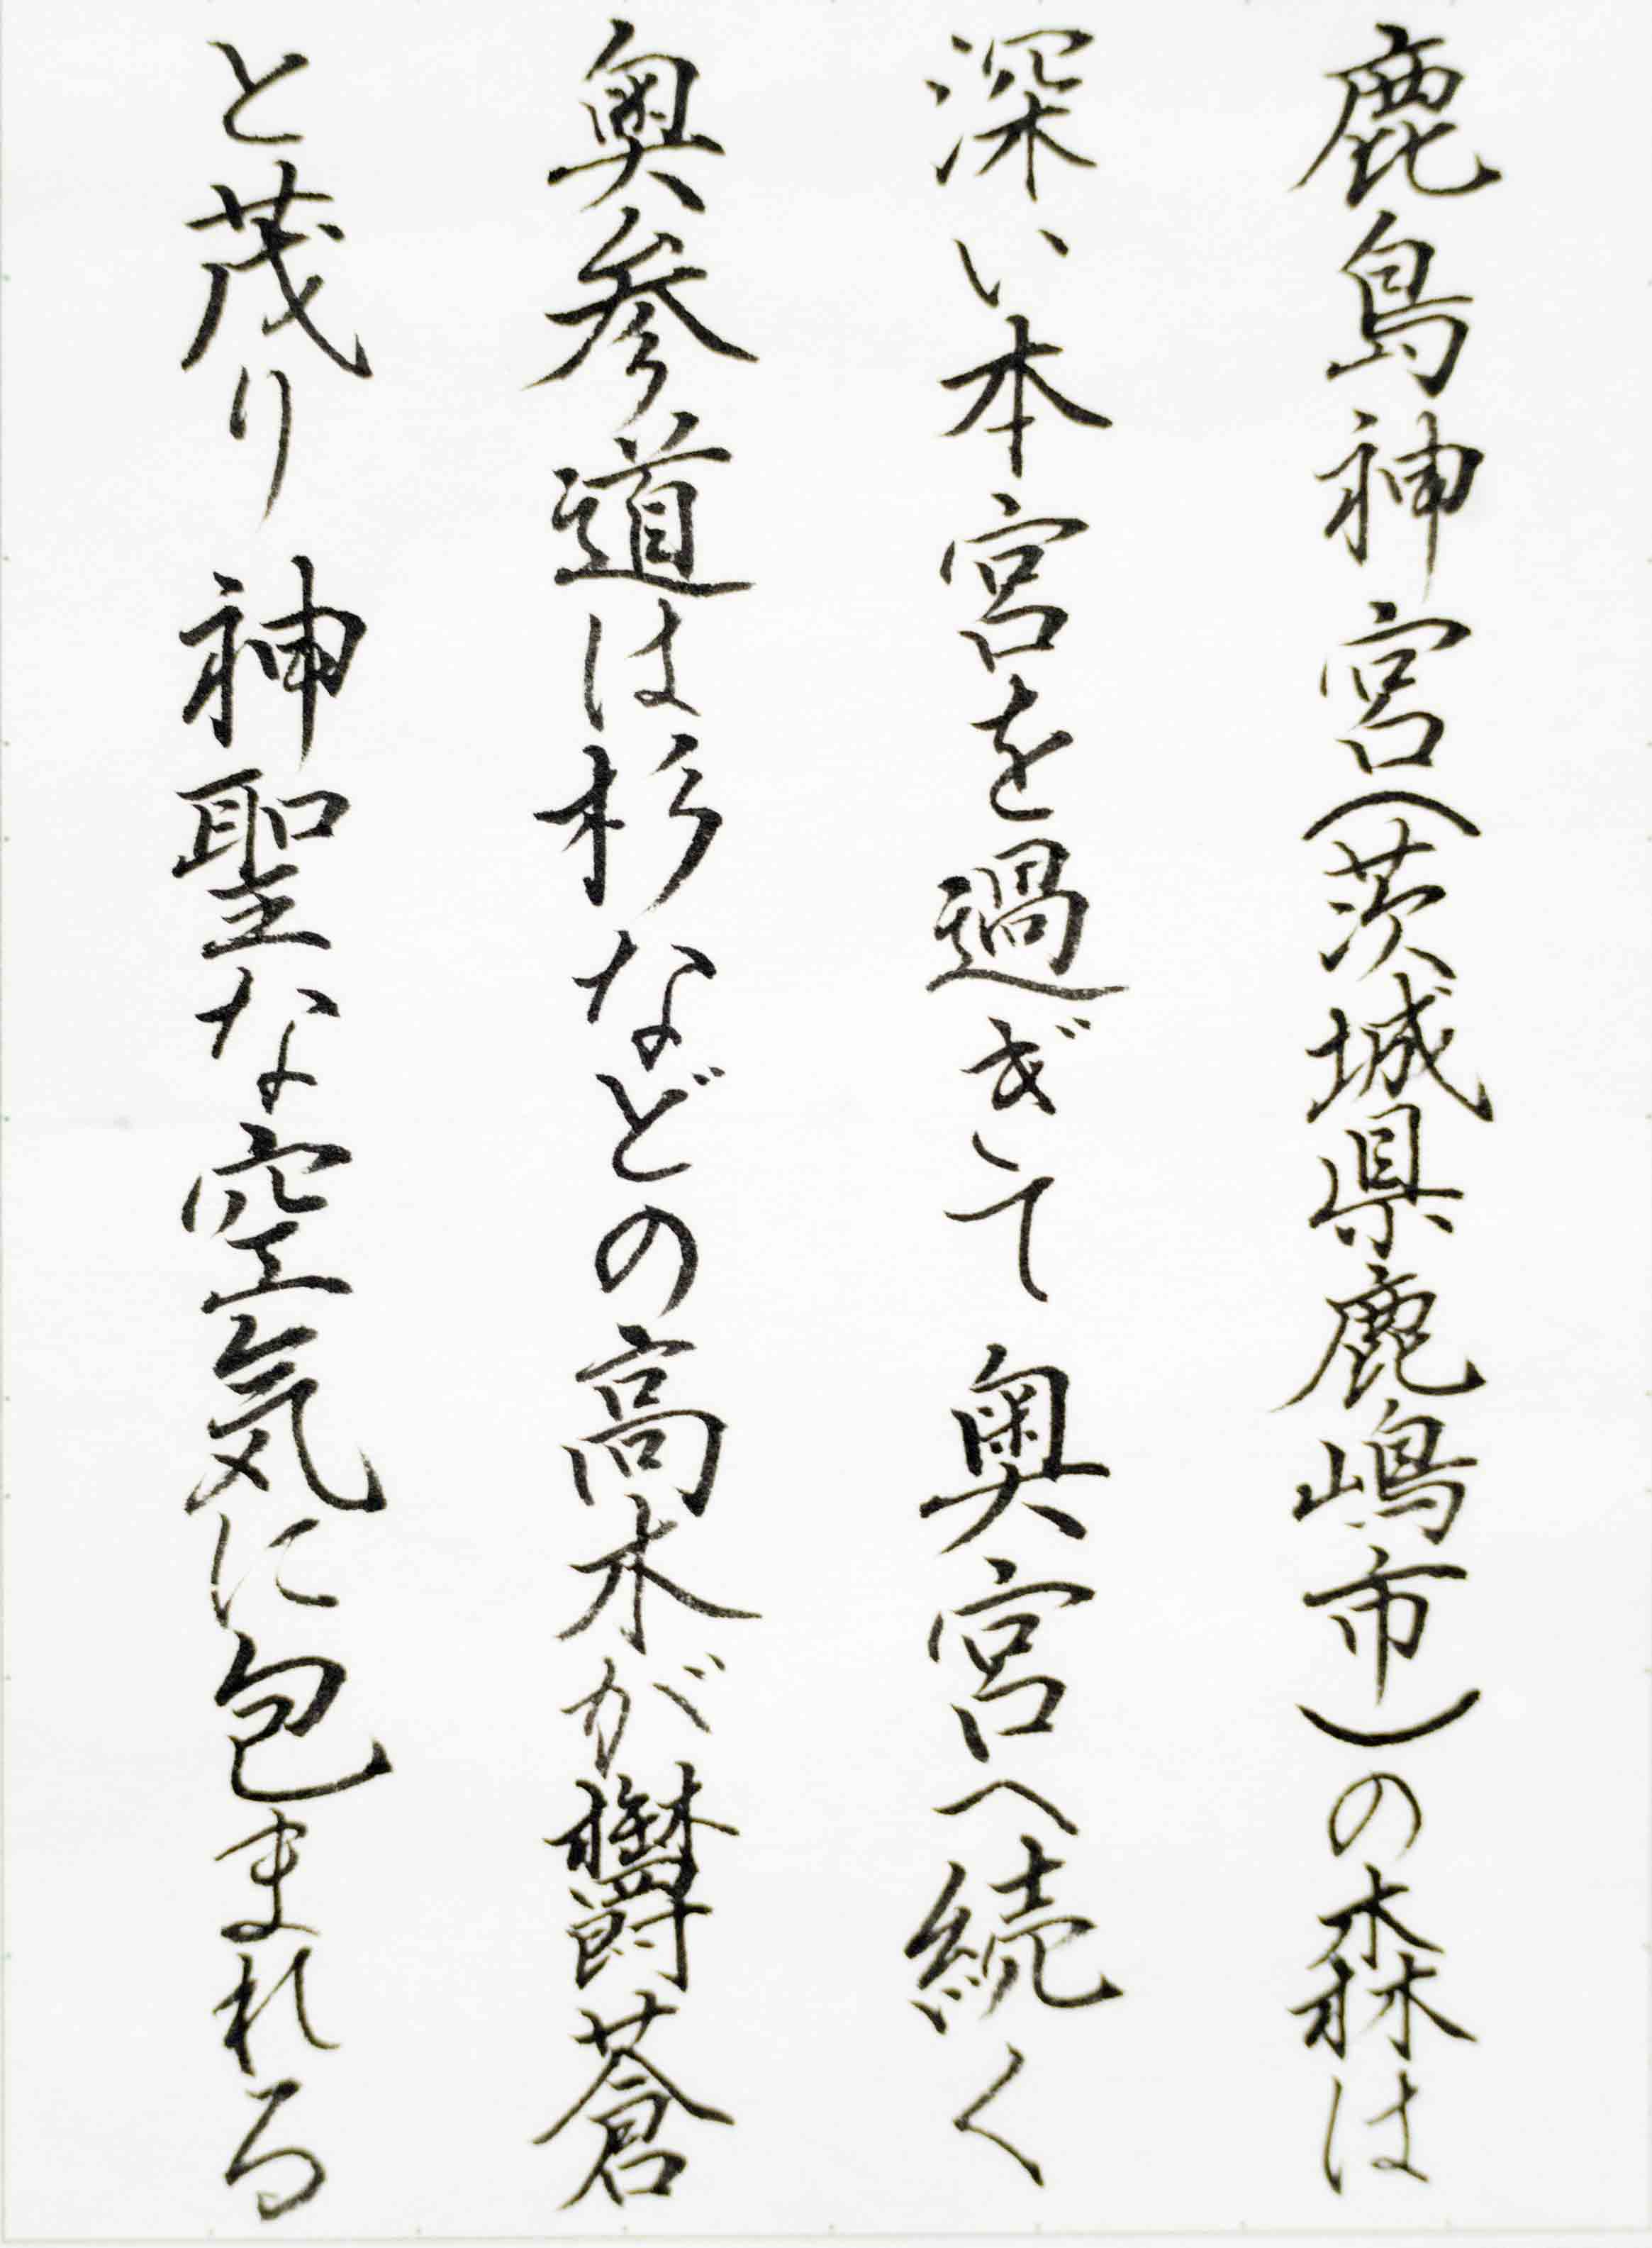 鹿島神宮(茨城県鹿嶋市)の森は
深い本宮を過ぎて 奥宮へ続く
奥参道は杉などの高木が鬱蒼
と茂り 神聖な空気に包まれる